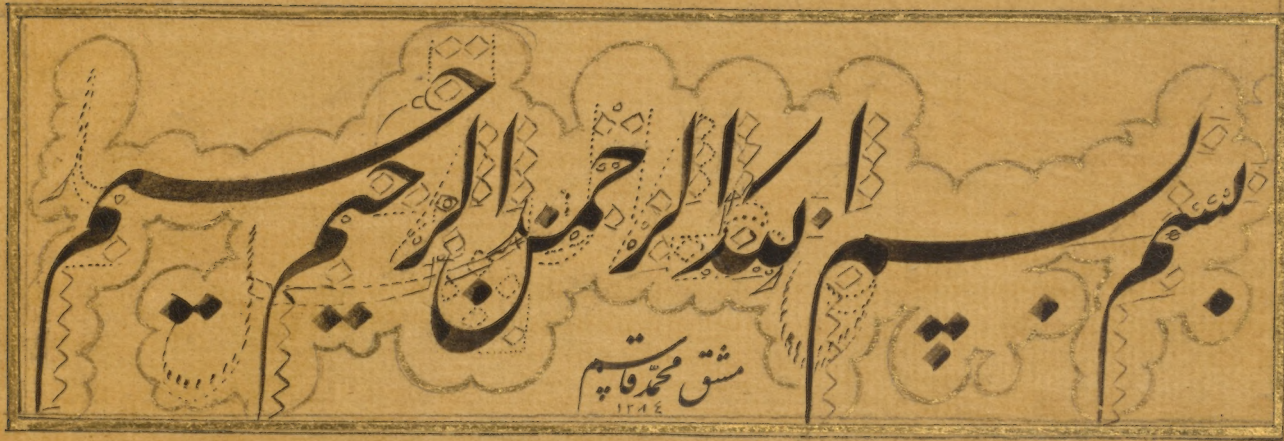 بسم بسم الله الرحمن الرحیم حیم
مشق محمّد قاسم
١٢٨٤